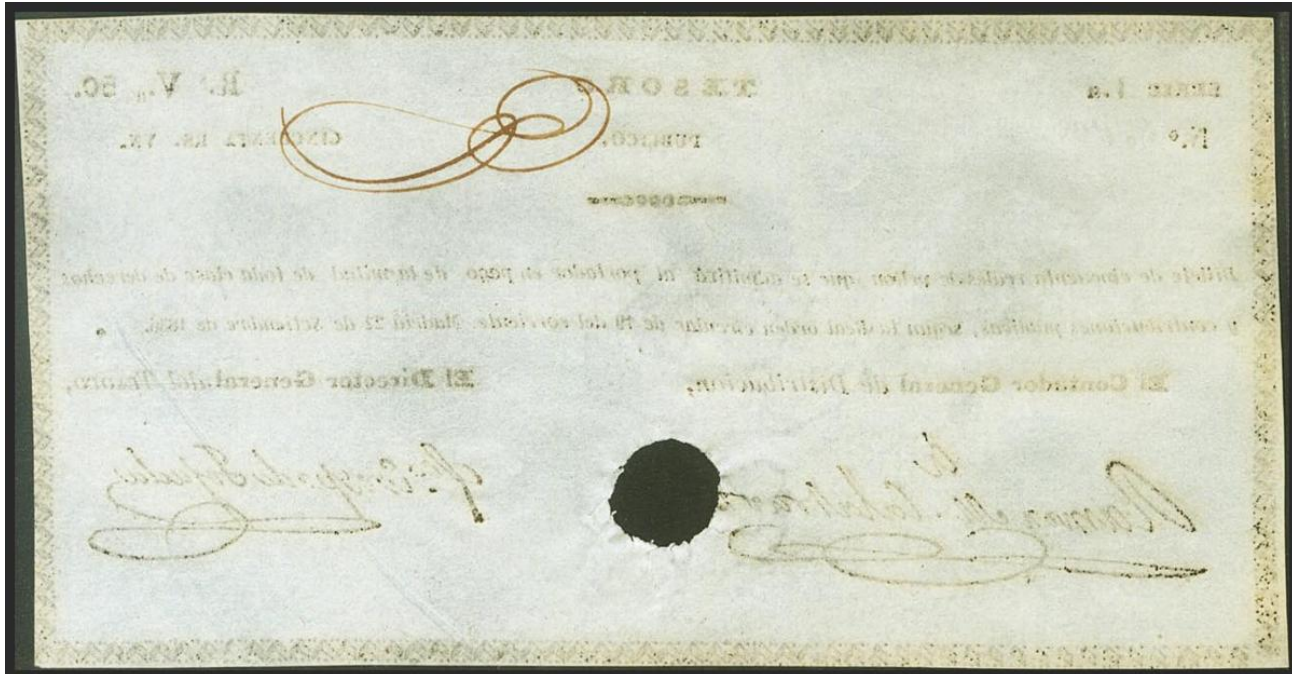 SERIE 1.a TESORO R.s V.n 50.
N.o PUBLICO. CINCUENTA RS. VN.
Billete de cincuenta reales de vellon que se admitirá al portador en pago de la mitad de toda clase de derechos
y contribuciones públicas, segun la Real orden circular de 19 del corriente. Madrid 22 de setiembre de
El Contador General de Distribucion, El Director General del Tesoro,